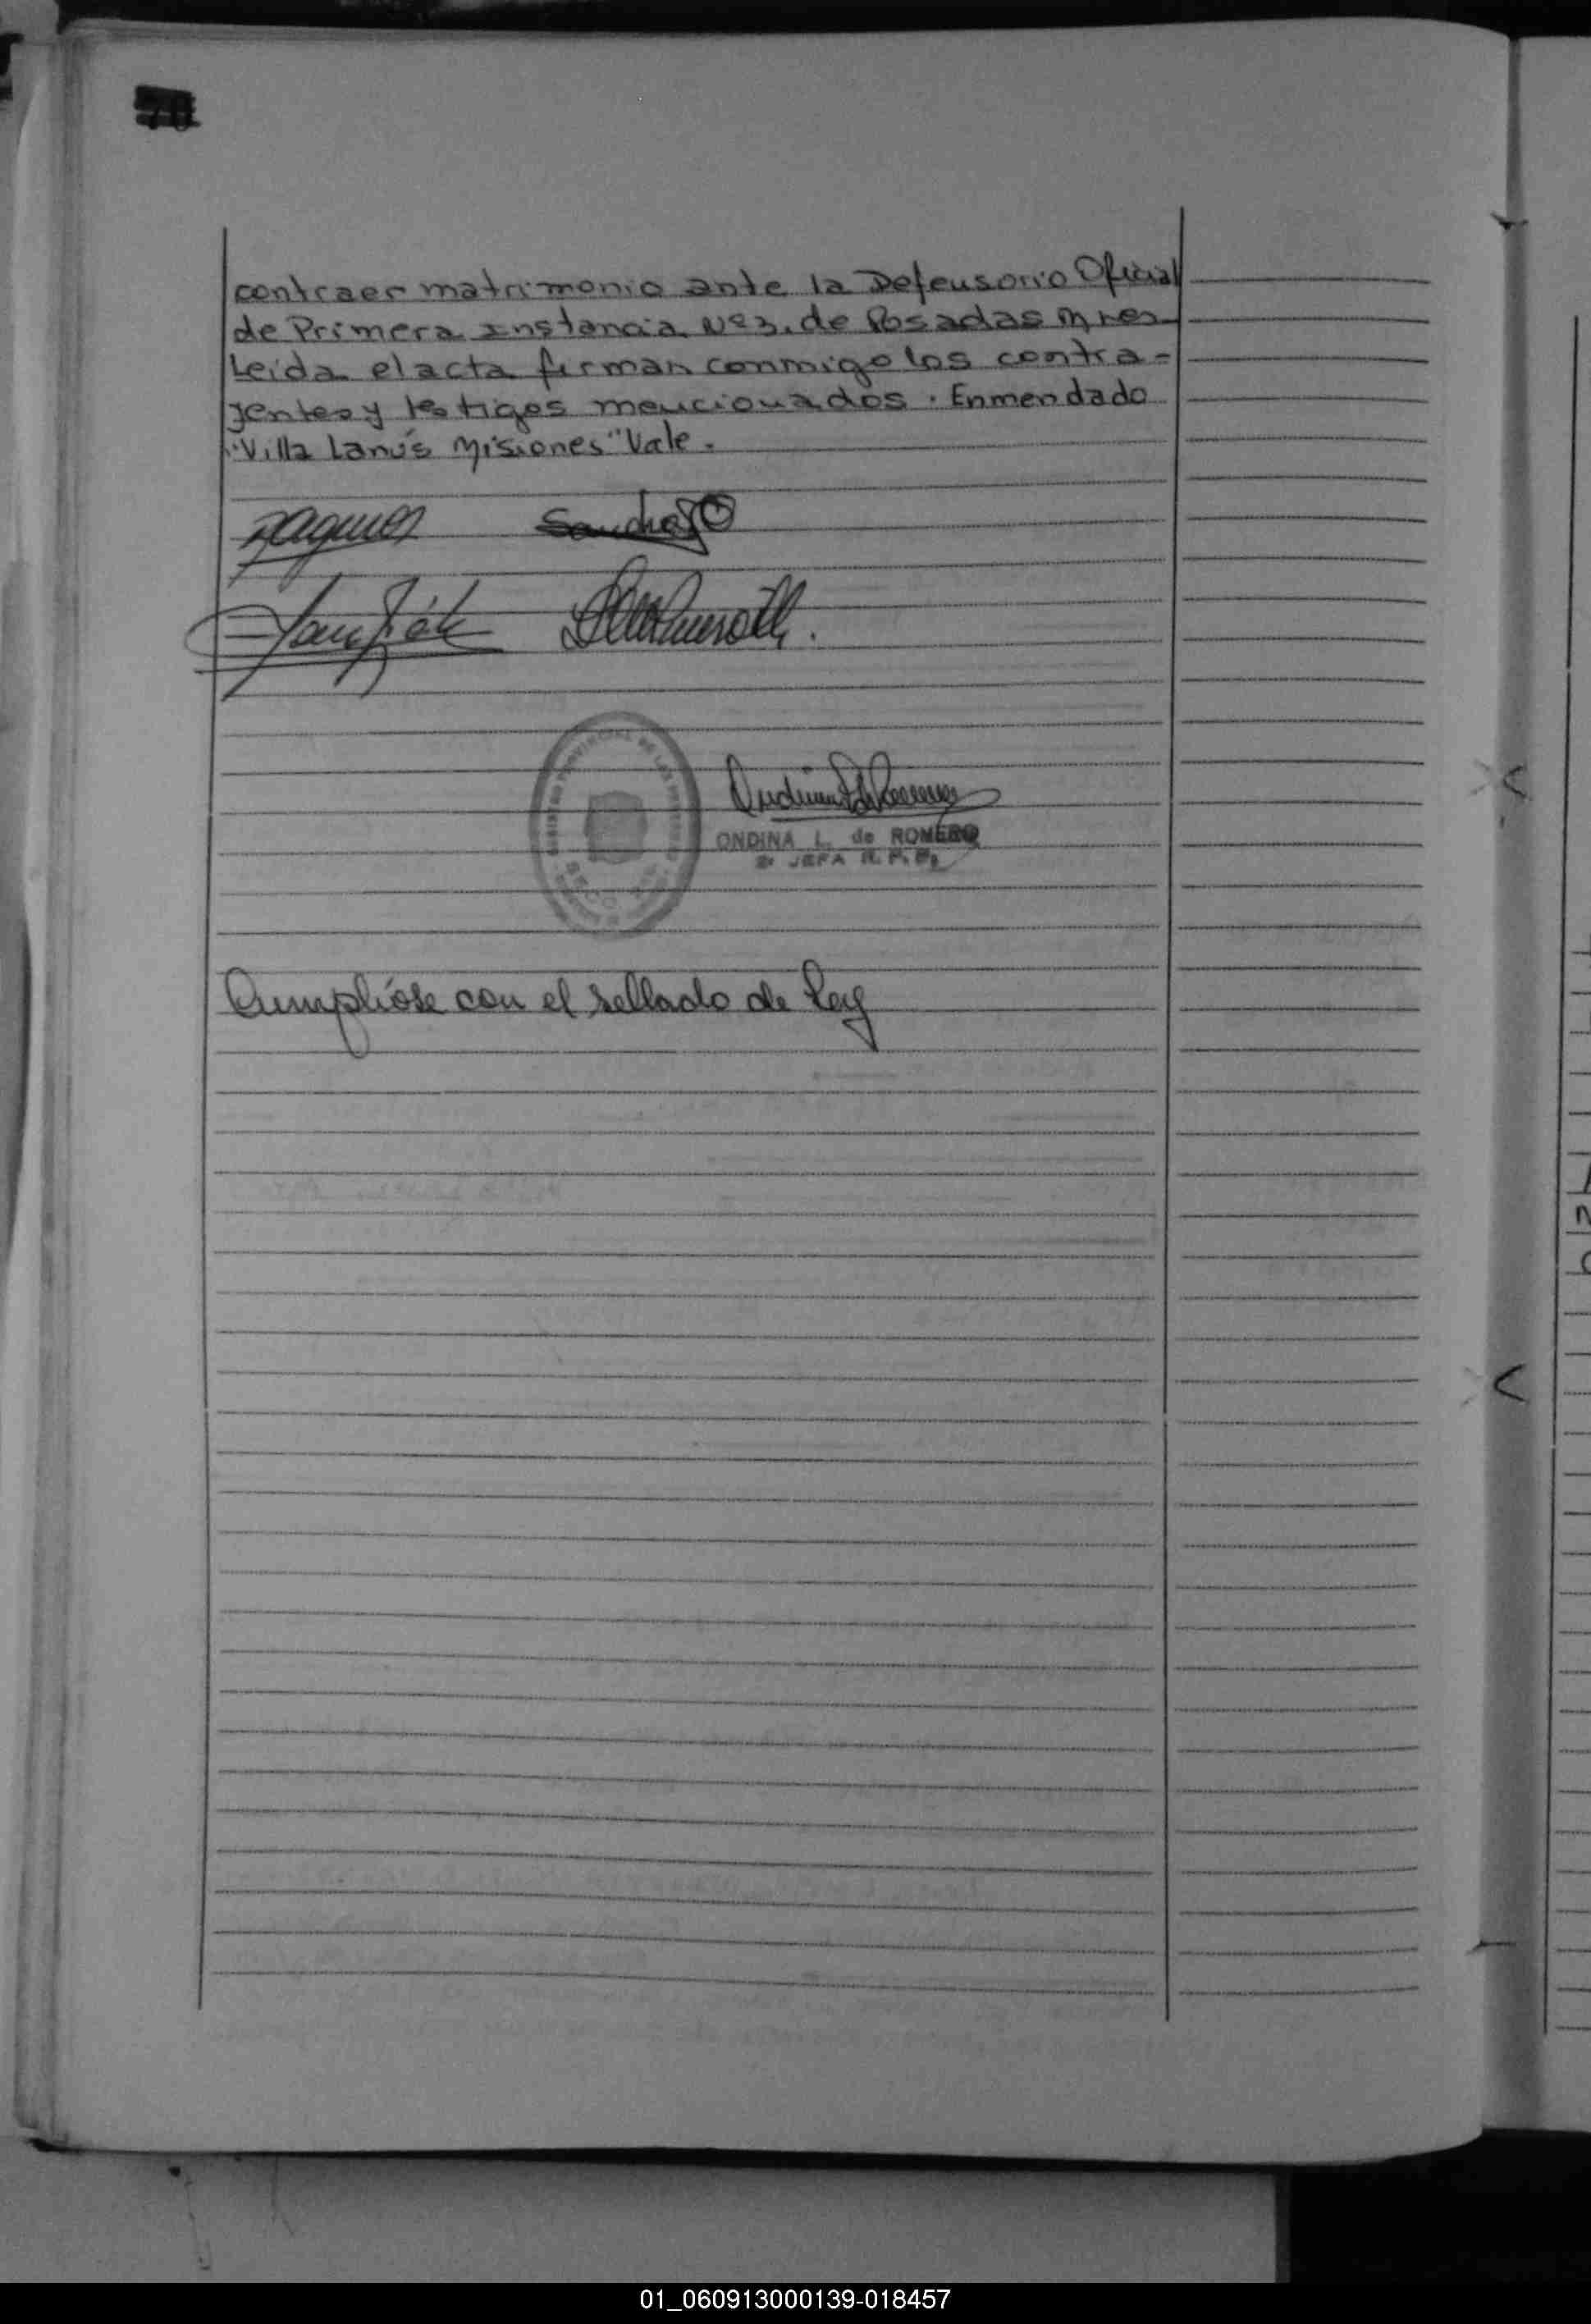 70
contraer matrimonio ante la Defensorio Oficial
de Primera Instancia Nº3. de Posadas Mnes
Leida el acta firman conmigo los contra-
jentes y testigos mencionados. Enmendado
"Villa Lanús Misiones" Vale.
ONDINA L. de ROMERO
JEFA R. P. P.
Cumplióse con el sellado de Ley
01_060913000139-018457